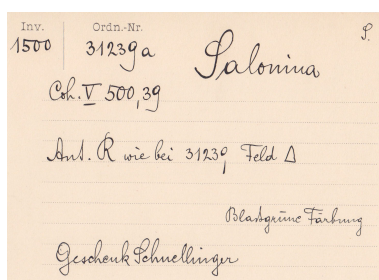 Inv. Ordn.-Nr. S.
1500 31239a Salonina
Coh. V 500,39
Ant. R wie bei 31239, Feld Δ
Blassgrüne Färbung
Geschenk Schnellinger